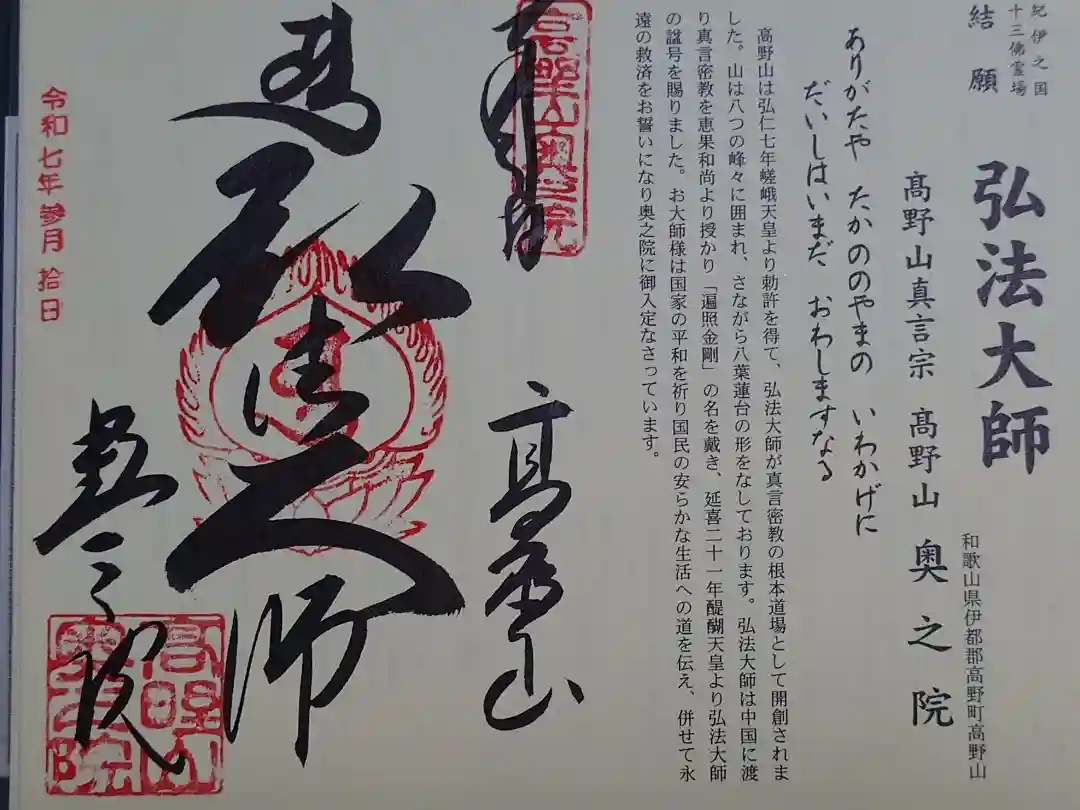 紀伊之国
十三佛霊場
結願
弘法大師
和歌山県伊都郡高野町高野山
髙野山真言宗 髙野山 奥之院
ありがたや たかののやまの いわかげに
だいしはいまだ おわしますなる
高野山は弘仁七年嵯峨天皇より勅許を得て、弘法大師が真言密教の根本道場として開創されま
した。山は八つの峰々に囲まれ、さながら八葉蓮台の形をなしております。弘法大師は中国に渡
り真言密教を恵果和尚より授かり「遍照金剛」の名を戴き、延喜二十一年醍醐天皇より弘法大師
の諡号を賜りました。お大師様は国家の平和を祈り国民の安らかな生活への道を伝え、併せて永
遠の救済をお誓いになり奥之院に御入定なさっています。
奉拝
高野山奥之院
高野山
弘法大師
奥之院
高野山
奥之院
令和七年参月拾日